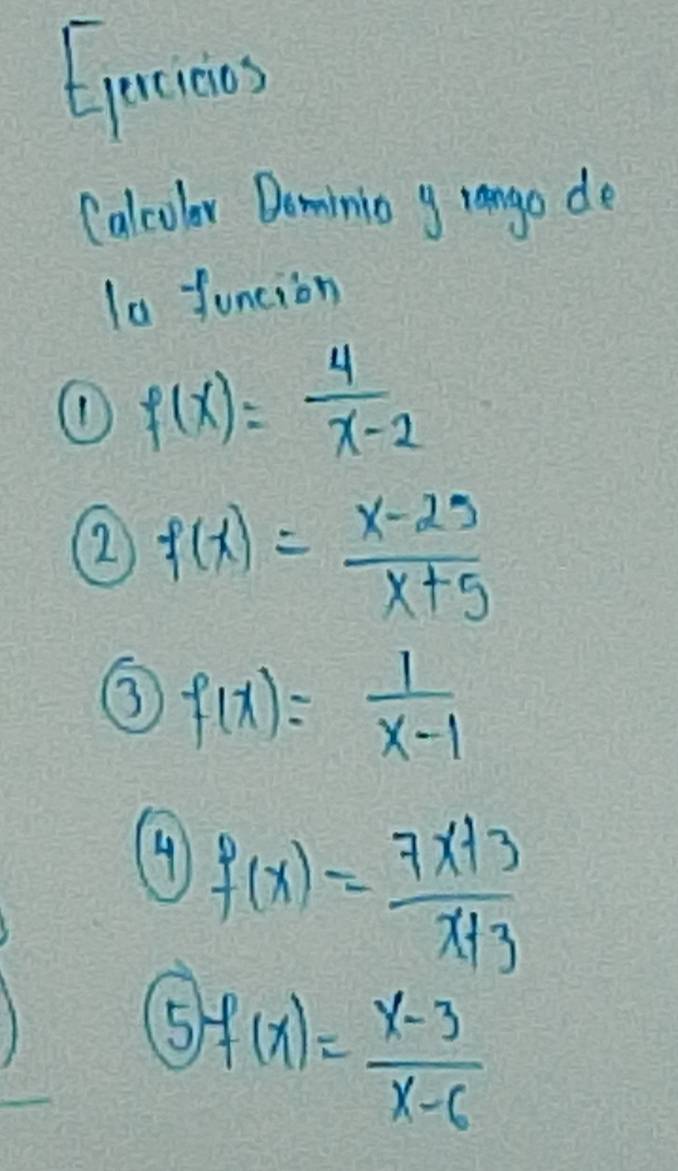 Ejercicios
Calcular Dominio y rango de
la función
① f(x) = 4/(x-2)
② f(x) = (x-25)/(x+5)
③ f(x) = 1/(x-1)
④ f(x) = (7x+3)/(x+3)
⑤ f(x) = (x-3)/(x-6)